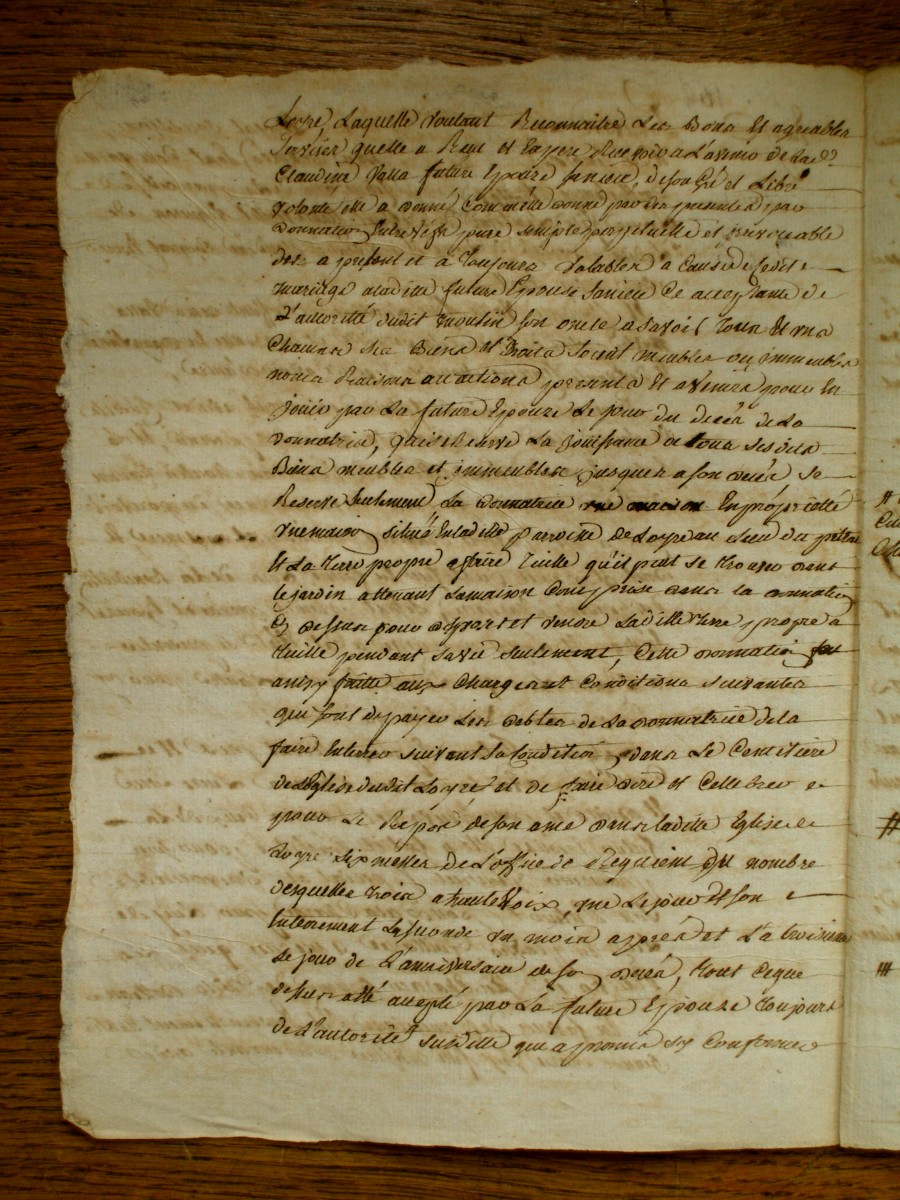 Loyre, Laquelle voulant Reconnaitre Les Bons Et agreables
Services quelle a Reçu et Espere Recevoir a L'avenir de Lad.
Claudine future Epouze sa niece, de son gré et Libre
volonté elle a donné comme elle donne par ces presentes par
donnation Entrevifs pure simple perpetuelle et irrevocable
des a present et a toujours valables a cause de cedit
mariage a laditte future Epouse sa niece Ce acceptante de
L'autorité dudit moulin son oncle a savoir tous Et uns
Chacuns ses Biens et Droits soient meubles ou immeubles
noms Raisons actions presents Et avenirs pour En
jouir par La future Epouze Le jour du decés de La
donnatrice, qui se Reserve La jouissance de tous sesdits
Biens meubles et immeubles jusques a son decés, se
Reserve seulement La donnatrice une maison En proprietté
une maison située En laditte Parroisse de Loyre au Lieu du
Et La terre propre a faire tuille qu'il peut se trouver dans
le jardin attenant La maison Comprise dans la donnation
Cy dessus pour et vendre Laditte terre propre a
tuille pendant sa vie seulement, Cette donnation
ainsy faitte aux Charges et Conditions suivantes
qui sont de payer Les debtes de La donnatrice de la
faire Enterrer suivant sa Condition dans Le Cemitiere
de L'Eglise dudit Loyre et de faire dire et Cellebrer
pour Le Repos de son ame dans laditte Eglise de
Loyre six messes de L'office de Requiem du nombre
desquelles trois a haute Voix, une Le jour de son
Enterrement La seconde un mois aprés et La troisieme
Le jour de L'anniversaire de son decés, tout ceque
dessus a été accepté par La future Epouze toujours
de L'autorité susditte que a promis s'y Conformer